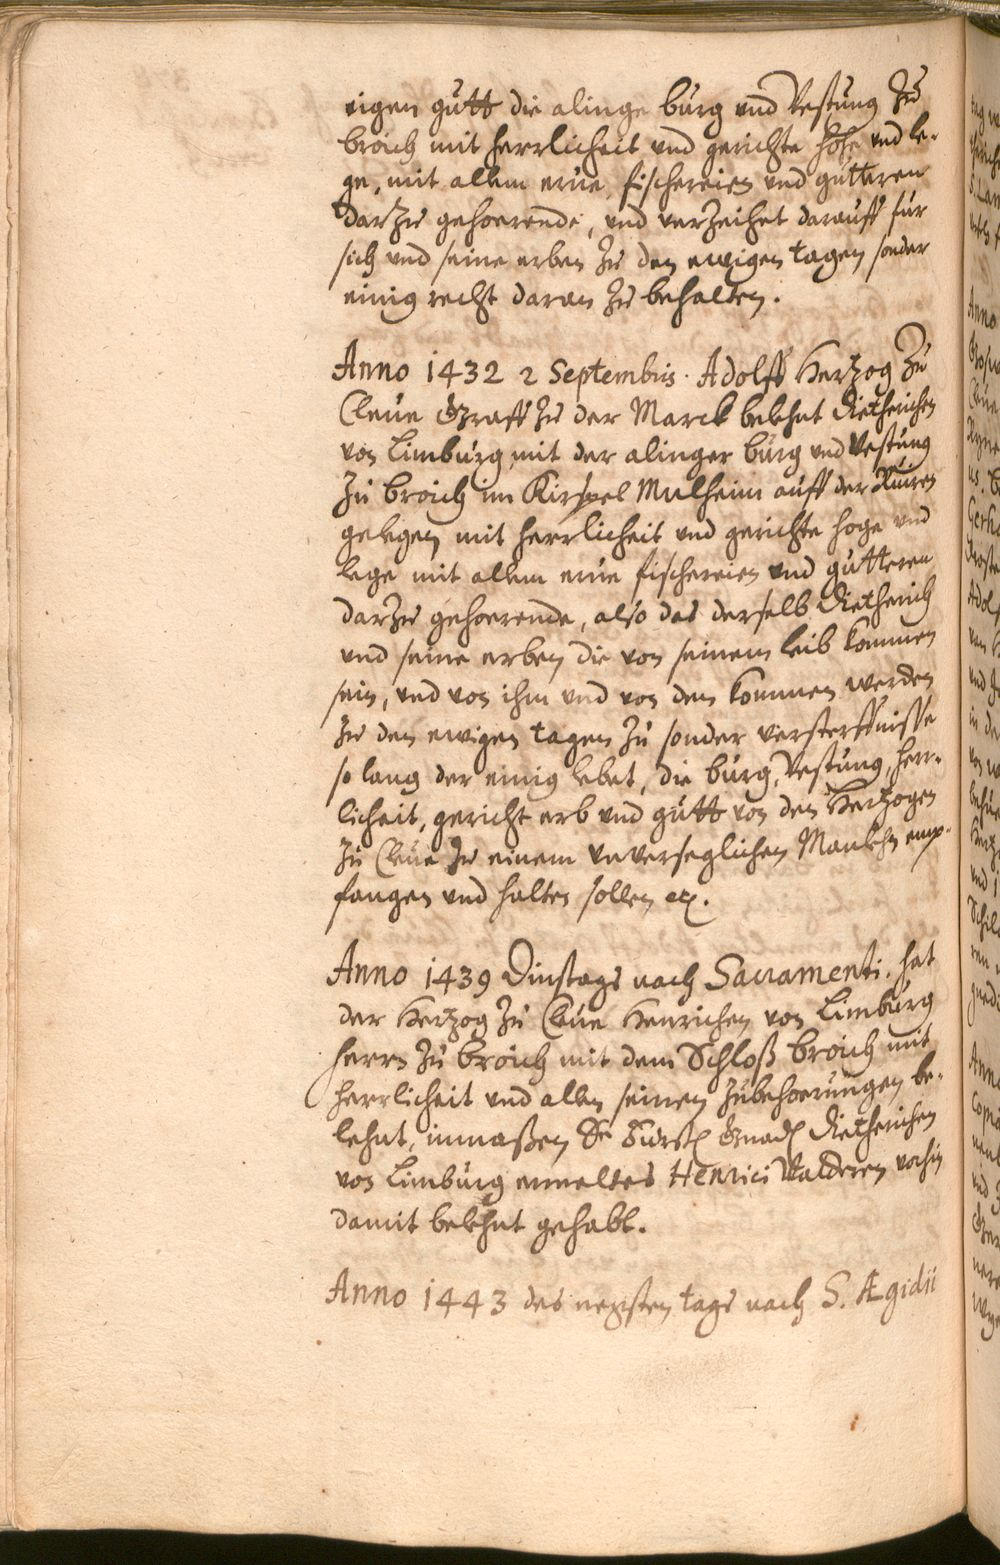 eigen gutt die alinge burg und Vestung zu
broich mit herrlicheit und gerichte hohe und le-
ge, mit allem eme fischereien und gutteren
darzu gehoerende, und verzeihet darauff fur
sich und seine erben zu den ewigen tagen sonder
einig recht daran zu behalten.
Anno 1432 2 Septembris. Adolff Hertzog zu
Cleue Graff zu der Marck belehnt Dietherichen
von Limburg mit der alinger burg und Vestung
zu broich im Kirspel Mulheim auff der Ruiren
gelegen mit herrlicheit und gerichte hoge und
lege mit allem eme fischereien und gutteren
darzu gehoerende, also das derselb Dietherich
und seine erben die von seinem leib kommen
sein, und von ihm und von den kommen werden
zu den ewigen tagen zu sonder versterffnisse
so lang der einig lebet, die burg, Vestung, herr-
licheit, gericht erb und gutt von den Hertzogen
zu Cleue zu einem unverseglichen Manlehn emp-
fangen und halten sollen etc.
Anno 1439 Dinstags nach Sacramenti. hat
der Hertzog zu Cleue Henrichen von Limburg
herrn zu broich mit dem Schloß broich mit
herrlicheit und allen seinen zubehoerungen be-
lehnt, inmaßen Se Furstl Gnadl Dietherichen
von Limburg ermeltes Henrici Valderen vorhin
damit belehnt gehabt.
Anno 1443 des negsten tags nach S. Ægidii